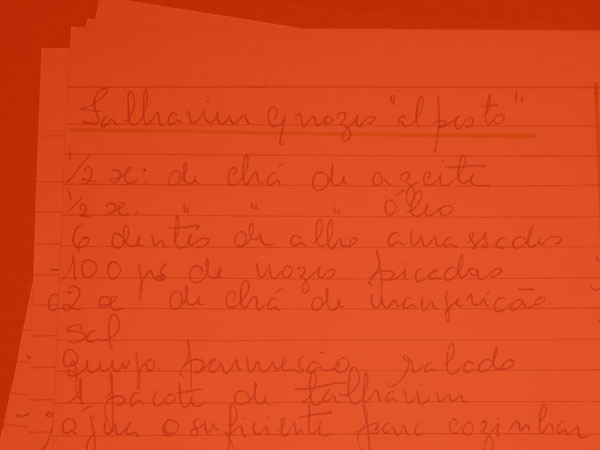 Talharim c/ nozes "al pesto"
1/2 x: de chá de azeite
1/2 x. " " " óleo
6 dentes de alho amassados
100 grs de nozes picadas
2 x: de chá de manjericão
sal
queijo parmesão ralado
1 pacote de talharim
água o suficiente para cozinhar